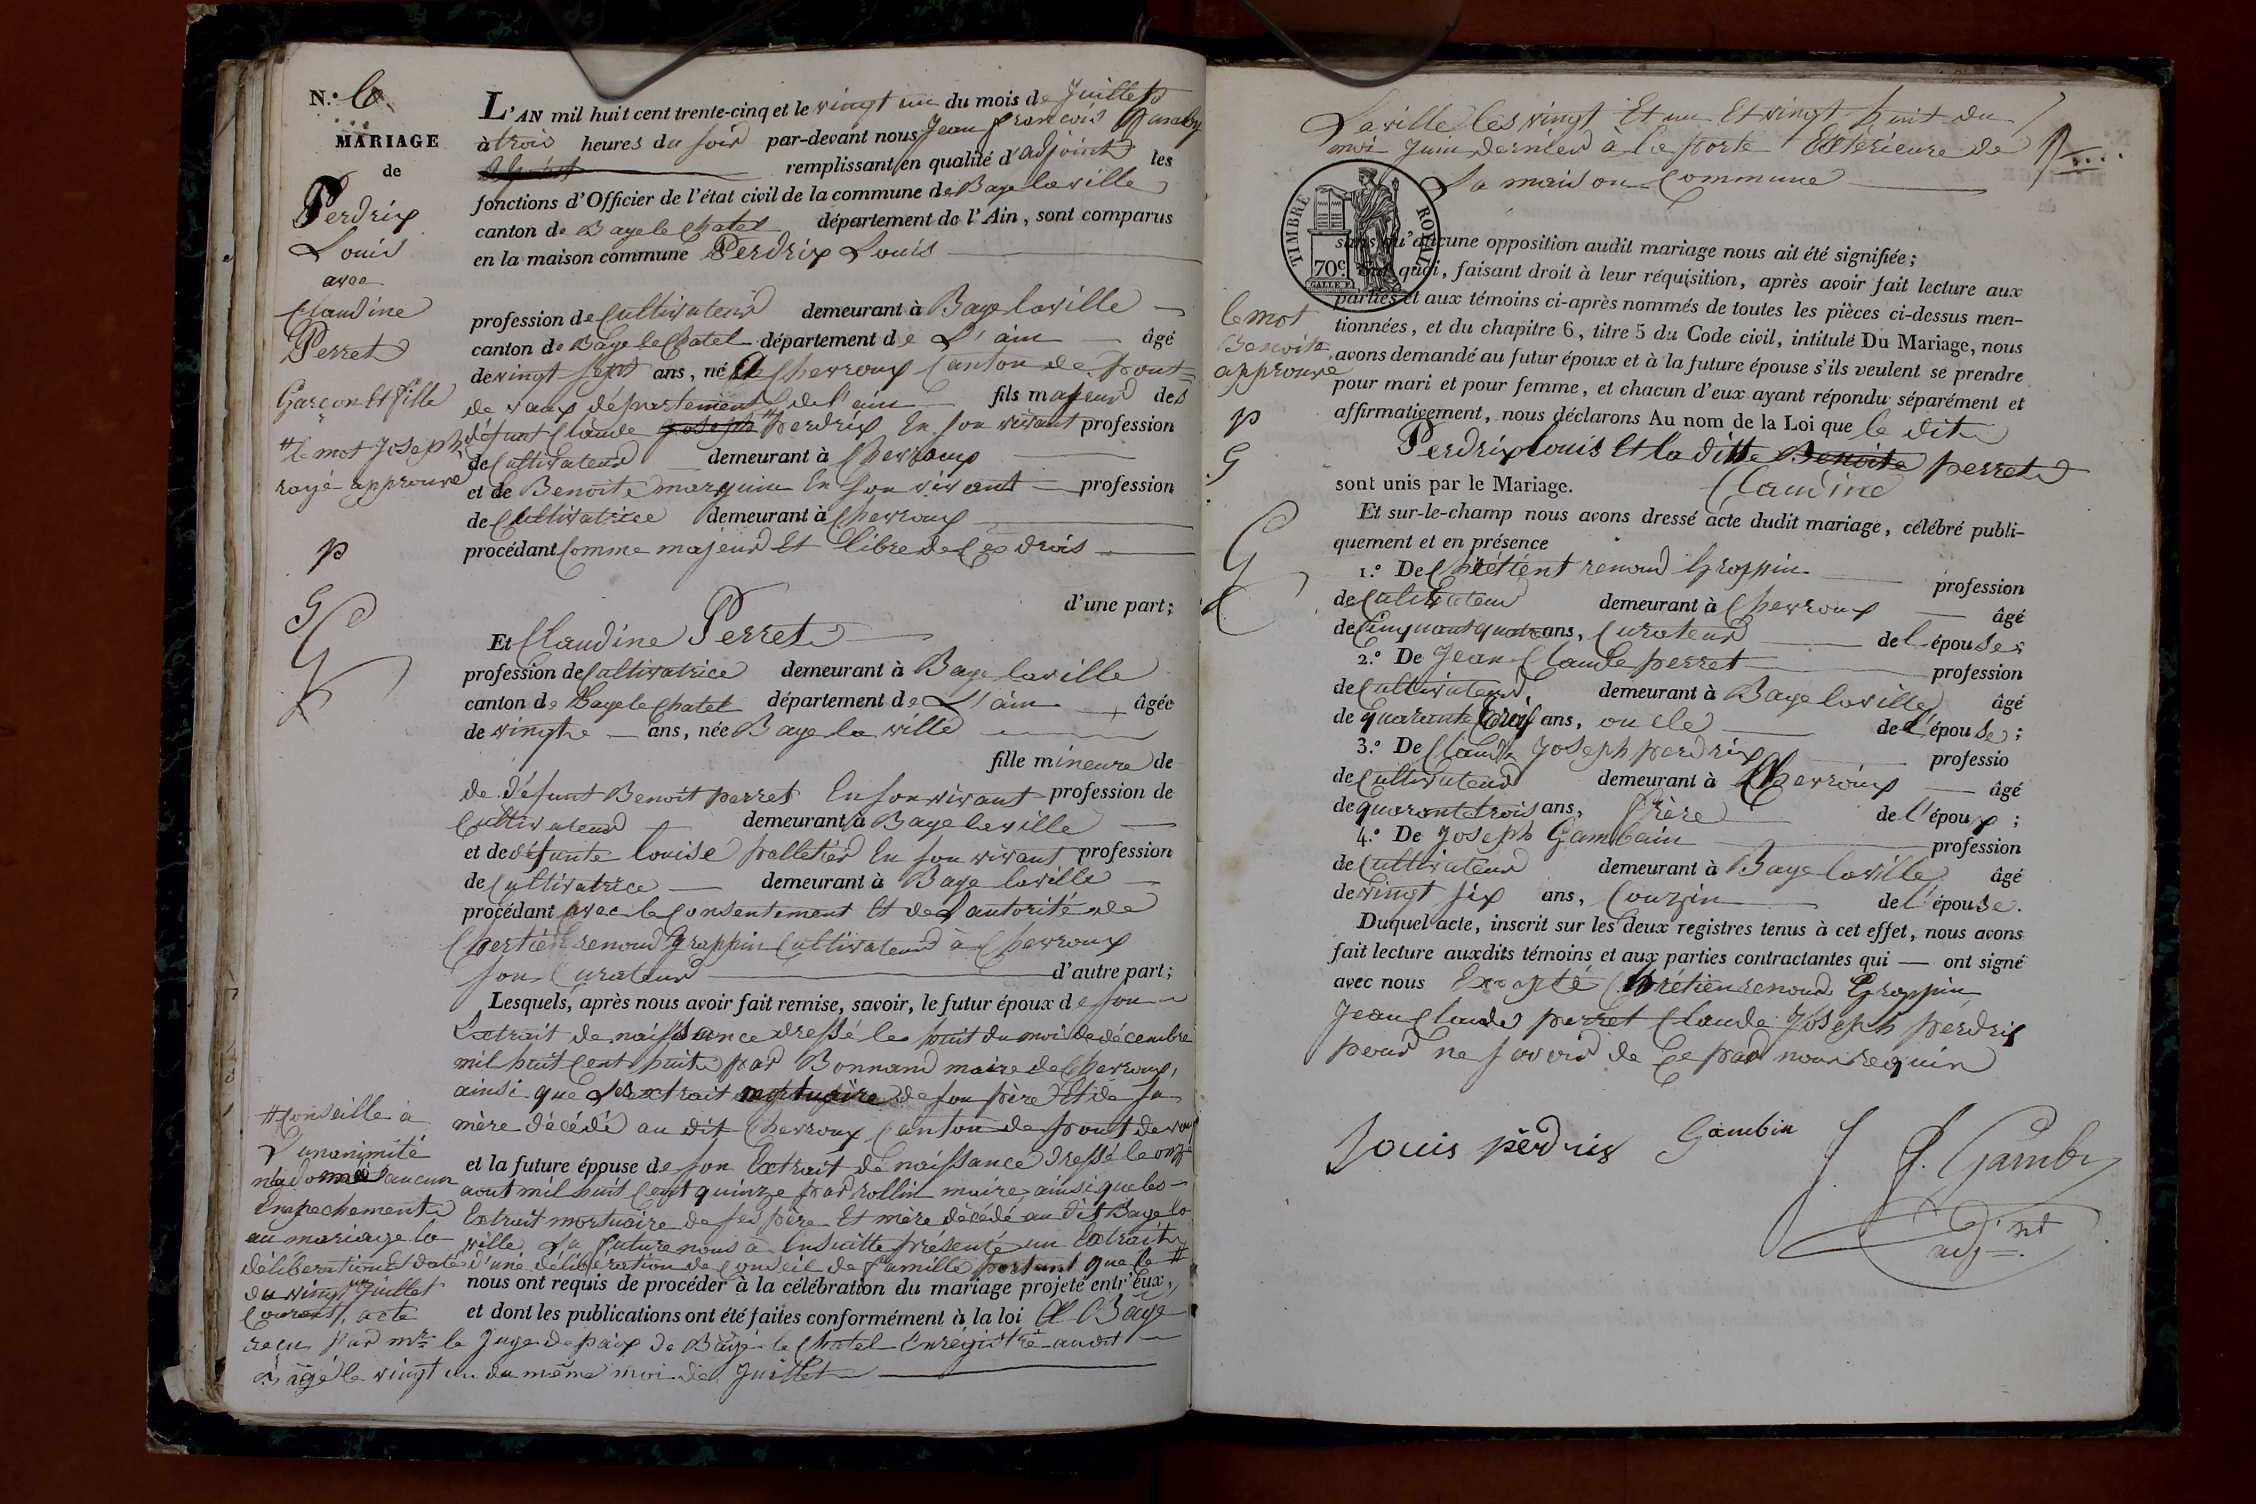 N.° 6.
MARIAGE
de
Perdrix
Louis
avec
Claudine
Perret
Garçon et fille
# le mot Joseph
rayé approuvé
p
G
L'AN mil huit cent trente-cinq et le vingt un du mois de Juillet
à trois heures du soir par-devant nous Jean françois
remplissant en qualité d'adjoint les
fonctions d'Officier de l'état civil de la commune de Bage laville
canton de Bage le Chatel département de l'Ain, sont comparus
en la maison commune Perdrix Louis
profession de Cultivateur demeurant à Bage laville
canton de Bage le Chatel département de L'ain âgé
de vingt sept ans, né à Cherroux Canton de pont
de vaux département de l'ain fils majeur des
défunt Claude Joseph # perdrix En son vivant profession
de Cultivateur demeurant à Cherroux
et de Benoite marguin En son vivant profession
de Cultivatrice demeurant à Cherroux
procédant Comme majeur Et libre de Ces drois
d'une part;
Et Claudine Perret
profession de Cultivatrice demeurant à Bage laville
canton de Bage le Chatel département de L'ain âgée
de vingt ans, née Bage la ville
fille mineure de
de défunt Benoit perret En son vivant profession de
Cultivateur demeurant à Bage laville
et de défunte Louise pelletier En son vivant profession
de Cultivatrice demeurant à Bage laville
procédant avec le Consentement Et de L'autorité de
Chertien renoud Grappin Cultivateur à Cherroux
son Curateur d'autre part;
Lesquels, après nous avoir fait remise, savoir, le futur époux de son
Extrait de naissance dressé les huit du moi de décembre
mil huit Cent huit par Bonnand maire de Cherroux,
ainsi que Les extrait mortuaire de son père Et de sa
mère décédé au dit Cherroux Canton de pont de vaux
et la future épouse de son Extrait de naissance dressé le onze
aout mil huit Cent quinze par rollin maire ainsi que les
Extrait mortuaire de ses père Et mère décédé au dit Bage la
ville La future nous a Ensuitte présenté un Extrait
d'une délibération de Conseil de famille portant que le #
nous ont requis de procéder à la célébration du mariage projeté entr'eux,
et dont les publications ont été faites conformément à la loi à Bage
# Conseille à
L'unanimité
n'a donné aucun
Empechement
au mariage la
délibération Est daté
du vingt un Juillet
Courant, acte
reçu par mr. le Juge de paix de Bagé le Chatel Enregistré audit
Bagé le vingt un du même moi de Juillet
Laville les vingt Et un Et vingt huit du
moi Juin dernier à la porte Extérieure de
La maison Commune
TIMBRE ROYAL
70c.
sans qu'aucune opposition audit mariage nous ait été signifiée;
Sur quoi, faisant droit à leur réquisition, après avoir fait lecture aux
parties et aux témoins ci-après nommés de toutes les pièces ci-dessus men-
tionnées, et du chapitre 6, titre 5 du Code civil, intitulé Du Mariage, nous
avons demandé au futur époux et à la future épouse s'ils veulent se prendre
pour mari et pour femme, et chacun d'eux ayant répondu séparément et
affirmativement, nous déclarons Au nom de la Loi que le dit
Perdrix Louis Et la ditte Benoite perret
Claudine
sont unis par le Mariage.
le mot
Benoite
approuvé
p
G
Et sur-le-champ nous avons dressé acte dudit mariage, célébré publi-
quement et en présence
1.° De Chrétient renoud Grappin profession
de Cultivateur demeurant à Cherroux âgé
de Cinquant quatre ans, Curateur de l'épouse;
2.° De Jean Claude perret profession
de Cultivateur, demeurant à Bage laville âgé
de quarante trois ans, oncle de L'épouse;
3.° De Claude Joseph perdrix professio
de Cultivateur demeurant à Cherroux âgé
de quarante trois ans, frère de l'époux;
4.° De Joseph Gambain profession
de Cultivateur demeurant à Bage laville âgé
de vingt six ans, Couzin de l'épouse.
Duquel acte, inscrit sur les deux registres tenus à cet effet, nous avons
fait lecture auxdits témoins et aux parties contractantes qui — ont signé
avec nous Excepté Chrétien renoud Grappin
Jean Claude perret Claude Joseph perdrix
pour ne savoir de Ce par nous requin
Louis pérdrix Gambin J. f. Gamby
adj.nt